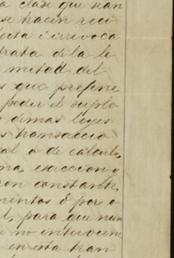 a clase que sean
se hacen reci
fecta é irrevoca
trata de la le
mitad del
s que prefine
poder el suplo
demas leyes
s transaccio
al o de calculo
ma, exaccion y
ron constante,
mentos ó por o
l, para que nun
no intervenir
en esta tran